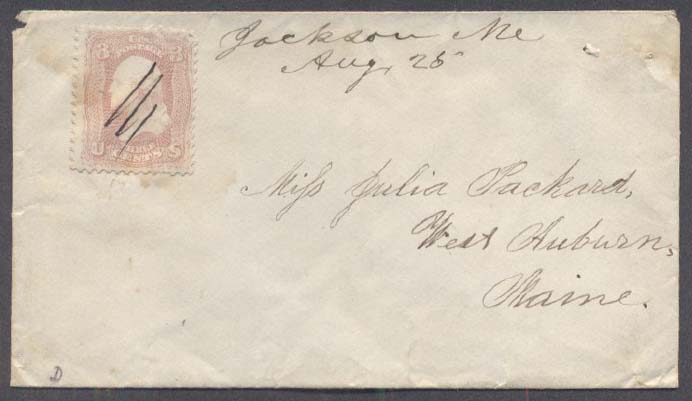 Jackson Me
Aug, 25
3 U.S. POSTAGE 3
U THREE CENTS S
Miss Julia Packard,
West Auburn,
Maine.
D